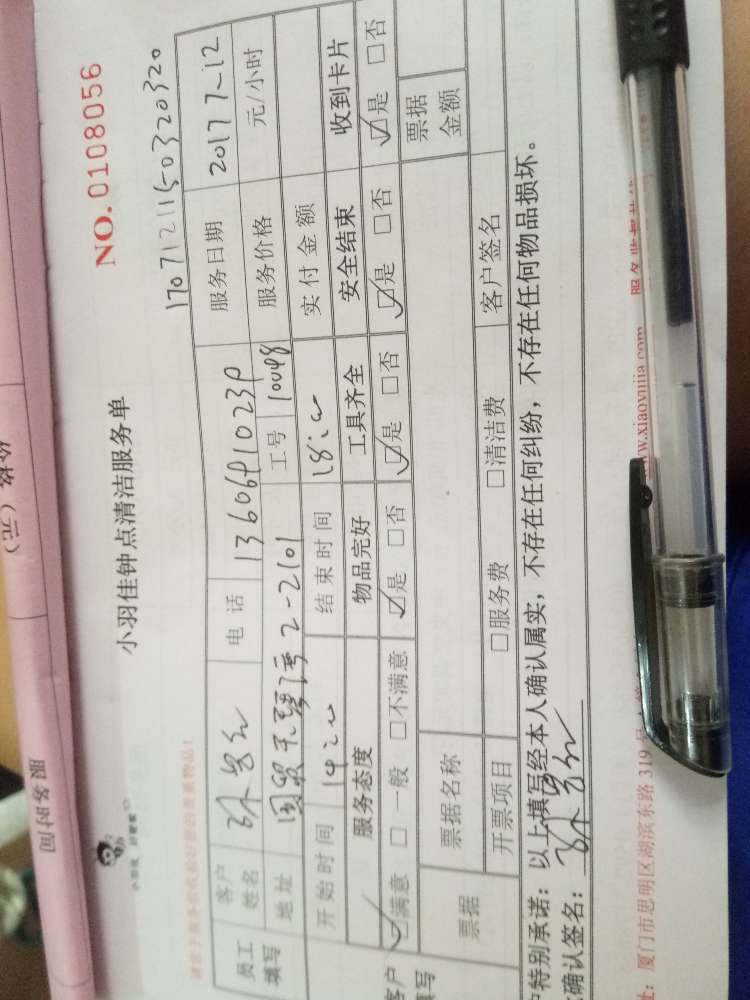 价格（元）
服务时间
小羽佳钟点清洁服务单
NO.0108056
小羽佳 好管家
1707121150320320
员工填写
客户姓名
电话 1360691023
服务日期 2017 7-12
地址 2-2101
工号 10098
服务价格 元/小时
开始时间 14:00
结束时间 18:00
实付金额
服务态度 物品完好 工具齐全 安全结束 收到卡片
☑满意 □一般 □不满意 ☑是 □否 ☑是 □否 ☑是 □否 ☑是 □否
客户填写
票据
票据名称
票据金额
开票项目 □服务费 □清洁费 客户签名
特别承诺：以上填写经本人确认属实，不存在任何纠纷，不存在任何物品损坏。
确认签名：
址：厦门市思明区湖滨东路 319 号
www.xiaoyujia.com